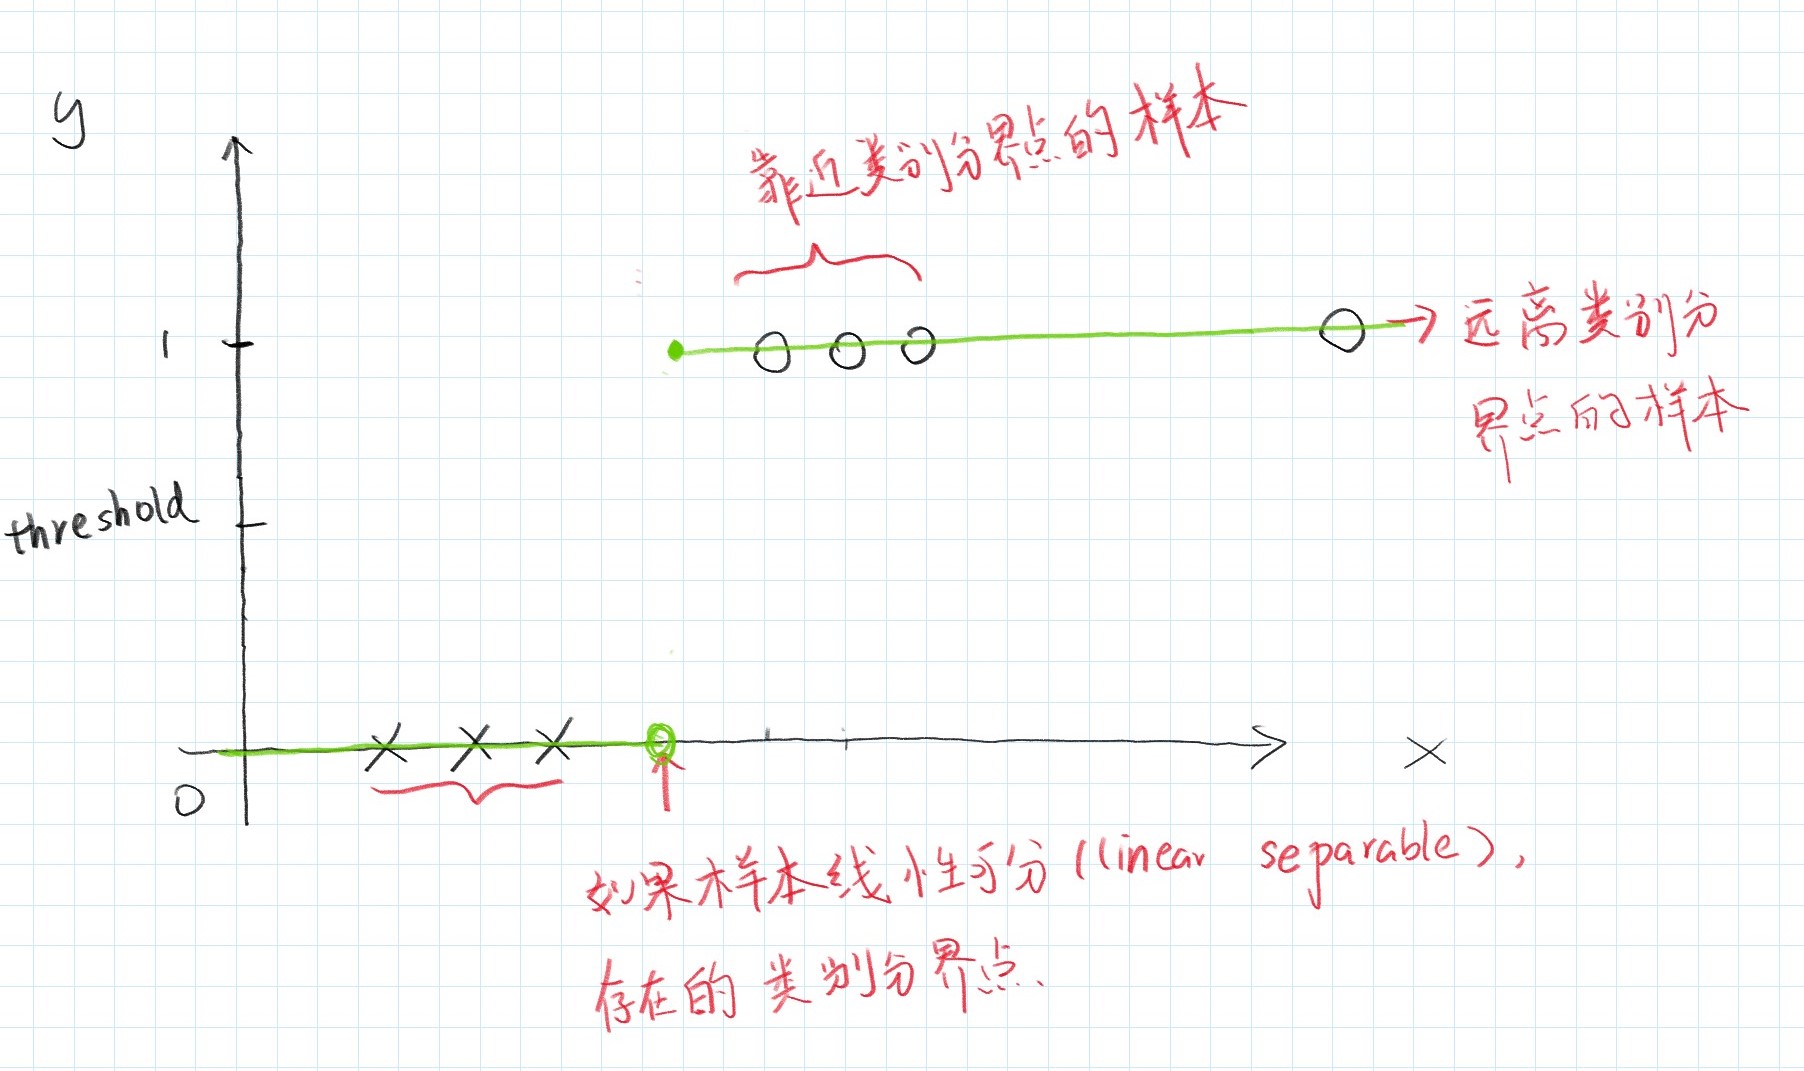 y
靠近类别分界点的样本
1
→ 远离类别分
界点的样本
threshold
0
x
如果样本线性可分 (linear separable),
存在的类别分界点.